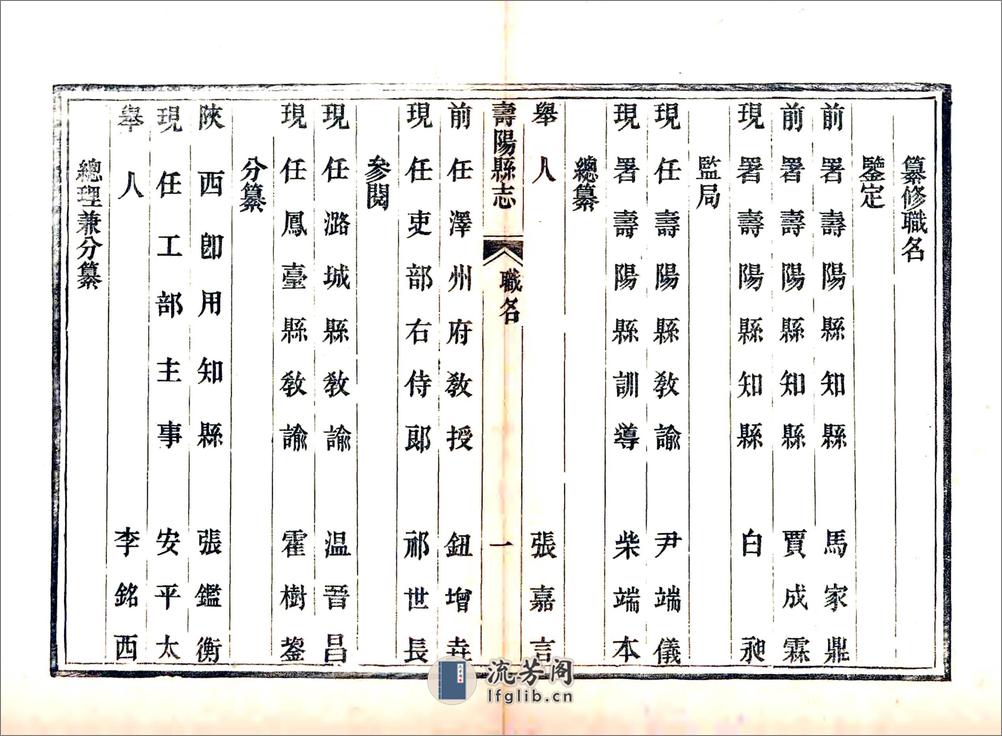 纂修職名
鑒定
前署壽陽縣知縣 馬家鼎
前署壽陽縣知縣 賈成霖
現署壽陽縣知縣 白昶
監局
現任壽陽縣教諭 尹端儀
現署壽陽縣訓導 柴端本
總纂
舉人 張嘉言
壽陽縣志 職名 一
前任澤州府教授 鈕增垚
現任吏部右侍郎 祁世長
參閱
現任潞城縣教諭 温晉昌
現任鳳臺縣教諭 霍樹鋆
分纂
陝西卽用知縣 張鑑衡
現任工部主事 安平太
舉人 李銘西
總理兼分纂
流芳阁
lfglib.cn